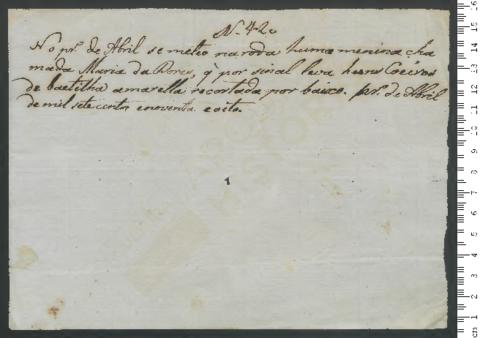 N. 42
No pr.º de Abril se meteo na roda huma menina cha
mada Maria da Dores, q̃ por sinal leva huns Coeiros
de baetilha amarella recortada por baixo. pr.º de Abril
de mil sete centos e noventa e oito.